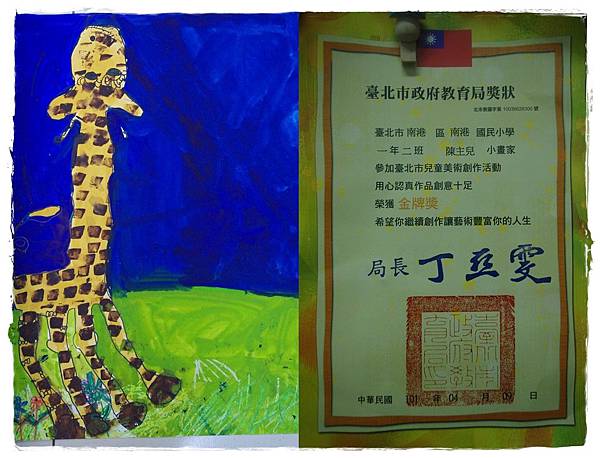 臺北市政府教育局獎狀
北市教國字第 10036628300 號
臺北市 南港 區 南港 國民小學
一年二班 陳主兒 小畫家
參加臺北市兒童美術創作活動
用心認真作品創意十足
榮獲 金牌獎
希望你繼續創作讓藝術豐富你的人生
局長 丁亞雯
中華民國 101 年 04 月 09 日